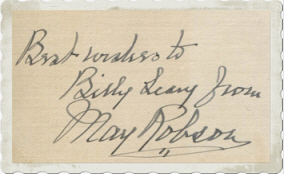 Best wishes to
Billy Leary from
May Robson